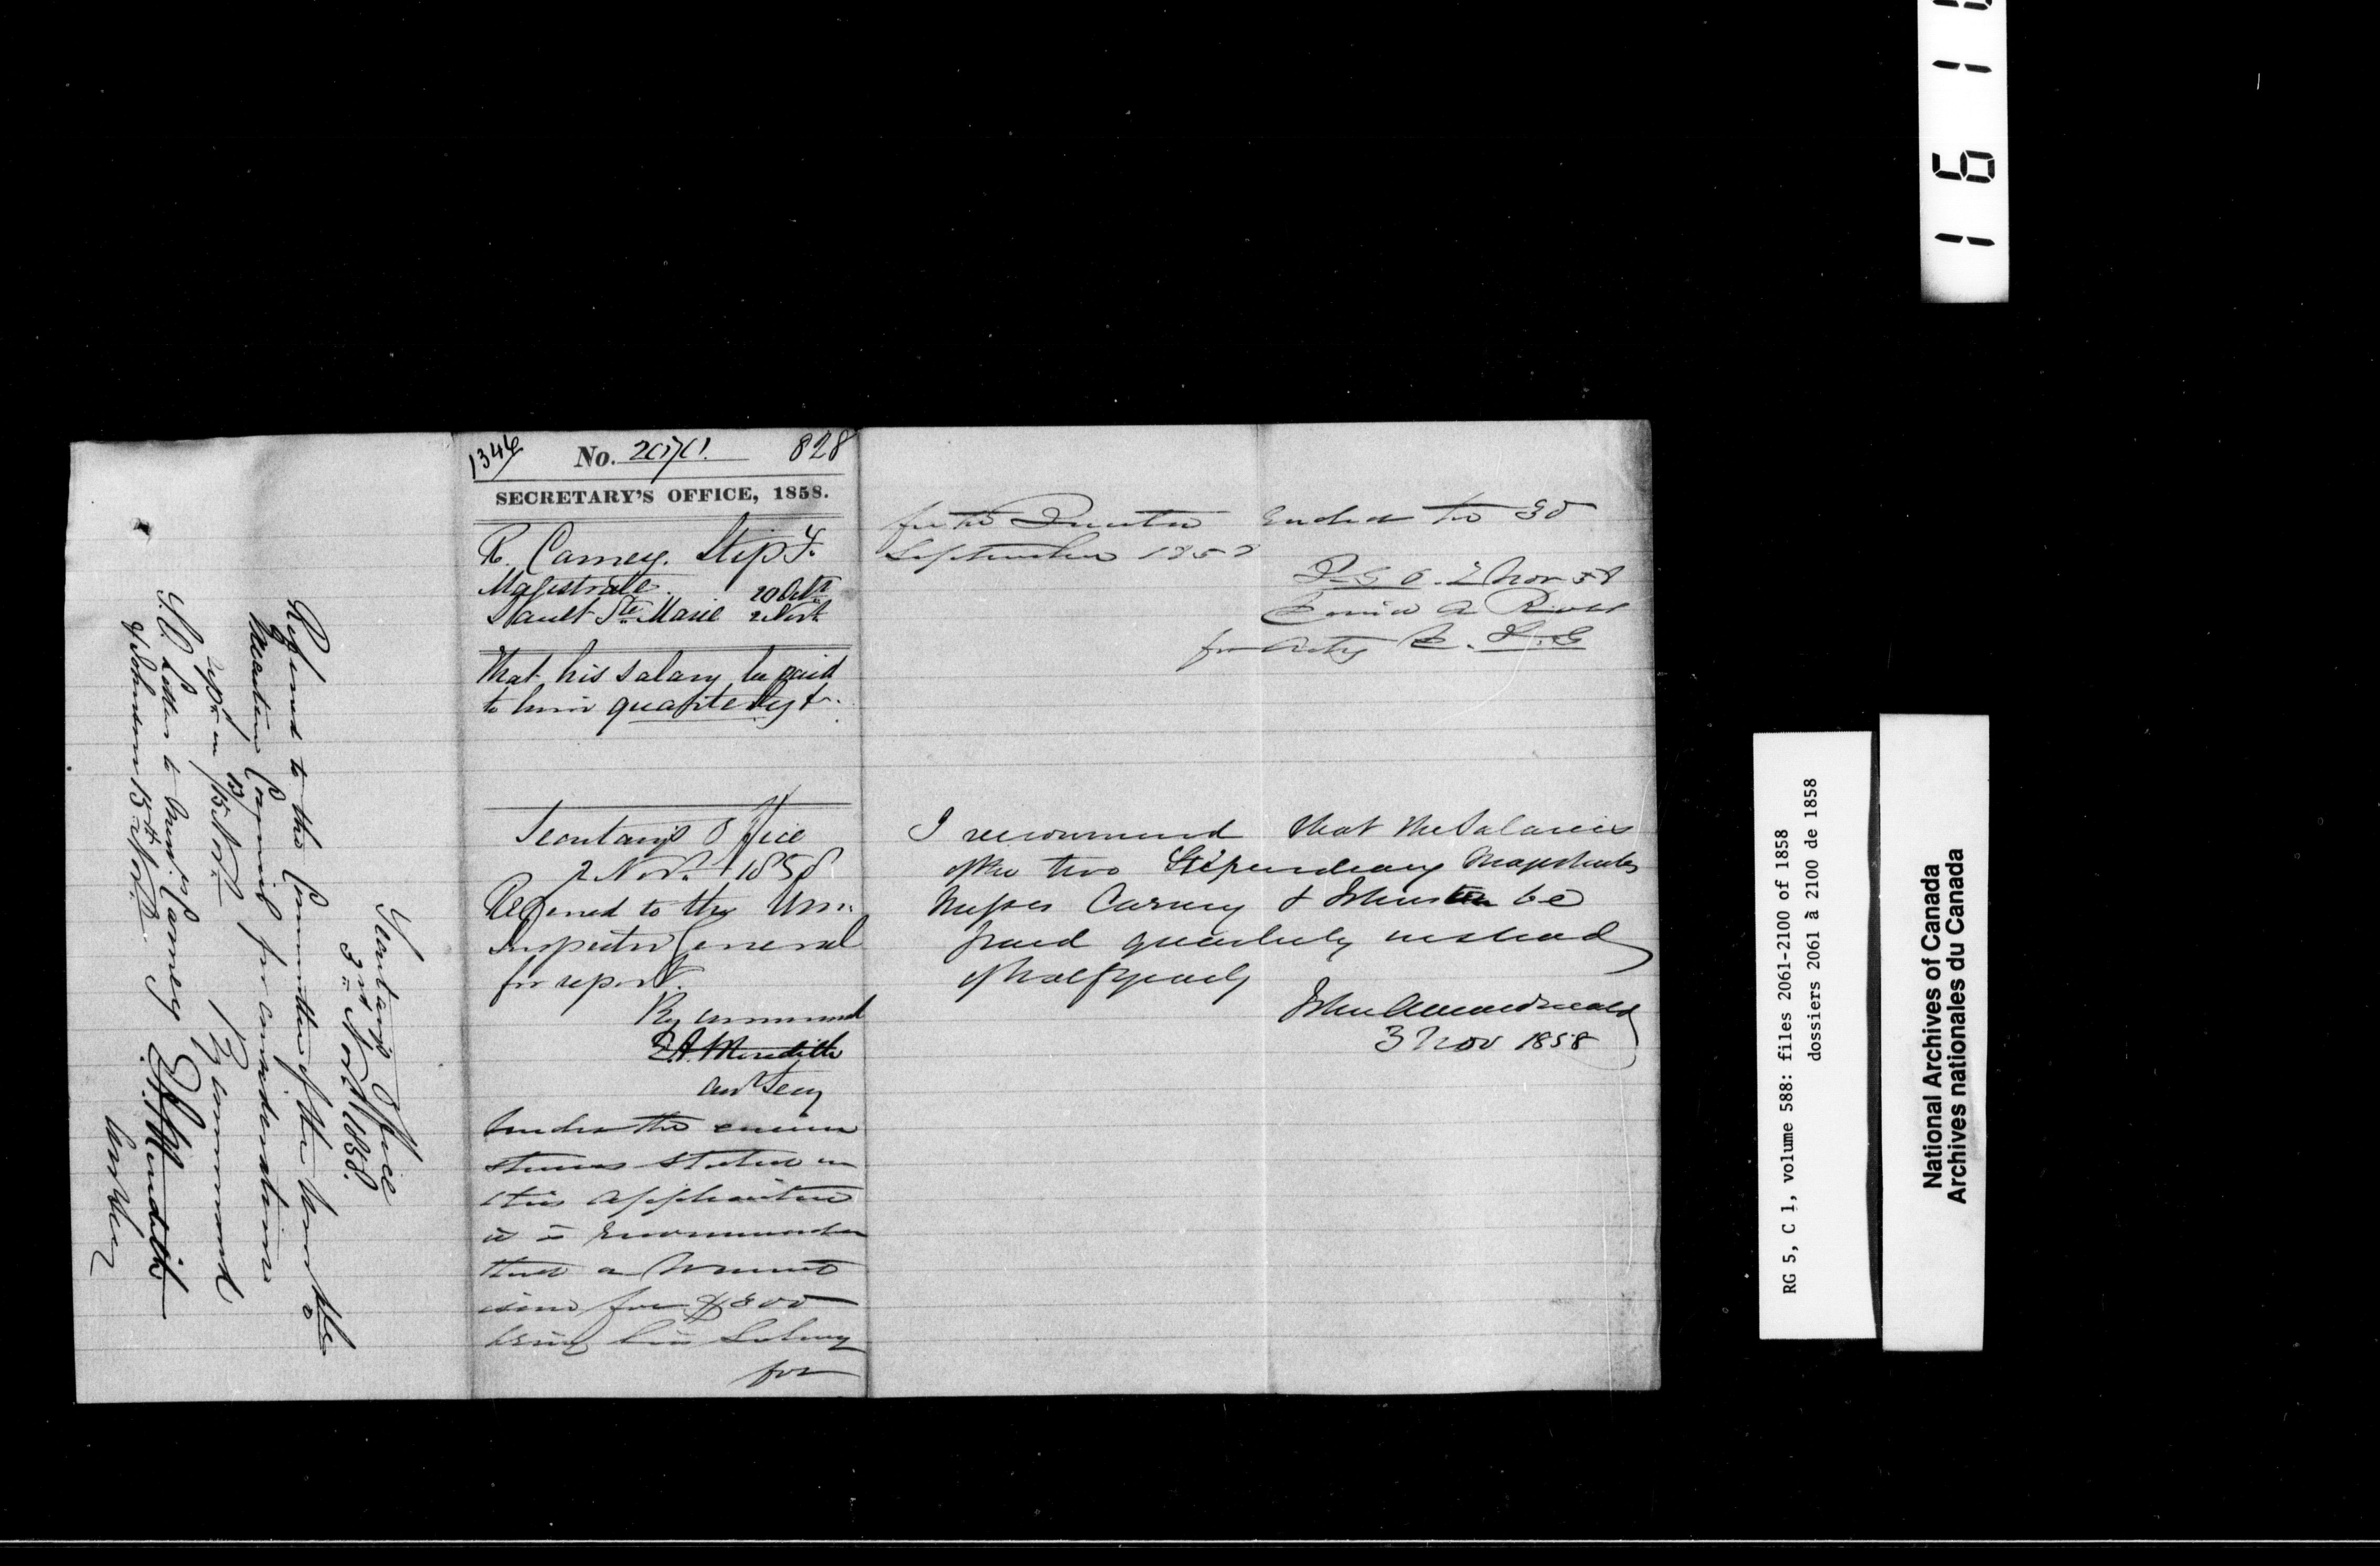 1344 No. 2070. 828
SECRETARY'S OFFICE, 1858.
R. Carney. Stip.y
Magistrate. 20 Octr
Sault Ste Marie 2 Novr
That his salary be paid
to him quarterly &c.
Secretary's Office
2 Novr. 1858
Referred to the Hon:
Inspector General
for report.
By command
E. A. Meredith
Asst Secy
Under the circum
stances stated in
this application
it is recommended
that a Warrant
issue for $300
being his Salary
for
for the Quarter ended the 30
September 1858
I. G. O. 2 Nov 58
for Acting D. I. G
I recommend that the Salaries
of the two Stipendiary Magistrates
Messrs Carney & Johnston be
paid quarterly instead
of half yearly
John A Macdonald
3 Nov 1858
Secretary's Office
3rd Novr 1858.
Referred to the Committee of the Honorable
Executive Council for consideration
By command
E. A. Meredith
Asst Secy
Repn on 13/15 Novr.
S.O. Letters to Messrs Carney
& Johnson 15th Novr.
1 6 1
RG 5, C 1, volume 588: files 2061-2100 of 1858
dossiers 2061 à 2100 de 1858
National Archives of Canada
Archives nationales du Canada